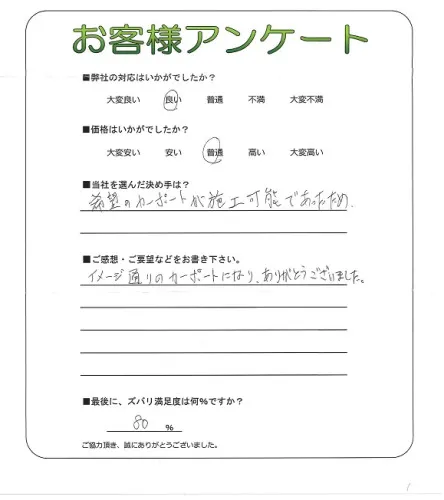 お客様アンケート
■弊社の対応はいかがでしたか?
大変良い 良い 普通 不満 大変不満
■価格はいかがでしたか?
大変安い 安い 普通 高い 大変高い
■当社を選んだ決め手は?
希望のカーポートが施工可能であったため.
■ご感想・ご要望などをお書き下さい。
イメージ通りのカーポートになり、ありがとうございました。
■最後に、ズバリ満足度は何%ですか?
80 %
ご協力頂き、誠にありがとうございました。